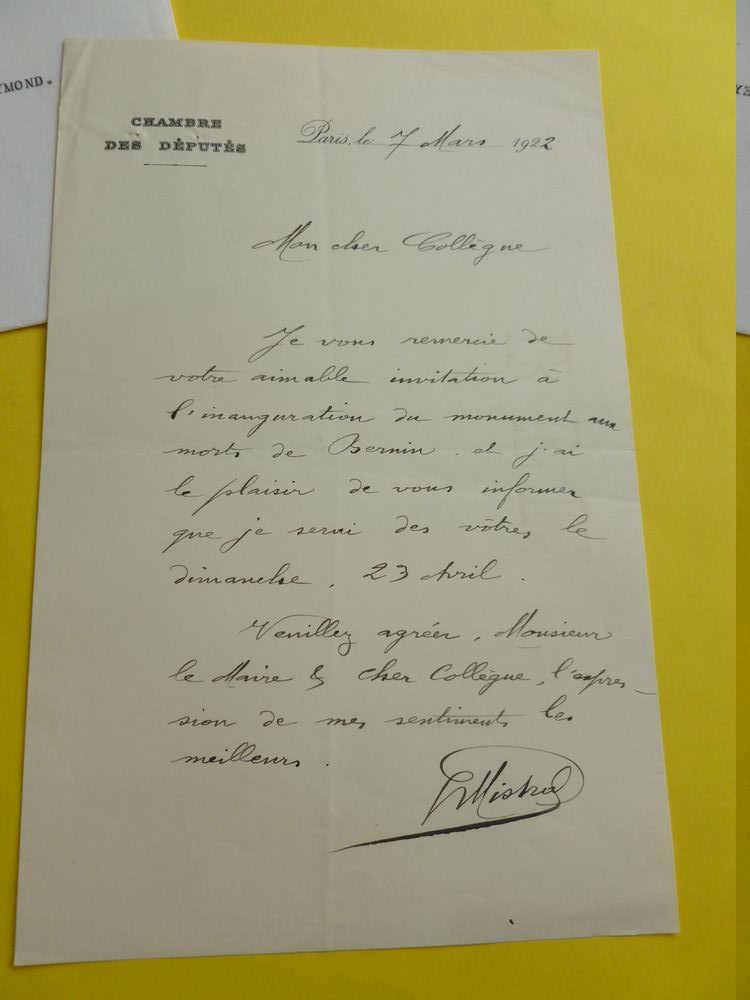 YMOND.
CHAMBRE
DES DÉPUTÉS
Paris, le 7 Mars 1922
Mon cher Collègue
Je vous remercie de
votre aimable invitation à
l'inauguration du monument aux
morts de Bernin. et j'ai
le plaisir de vous informer
que je serai des vôtres le
dimanche, 23 Avril.
Veuillez agréer, Monsieur
le Maire & cher Collègue, l'expres-
sion de mes sentiments les
meilleurs.
Mistral